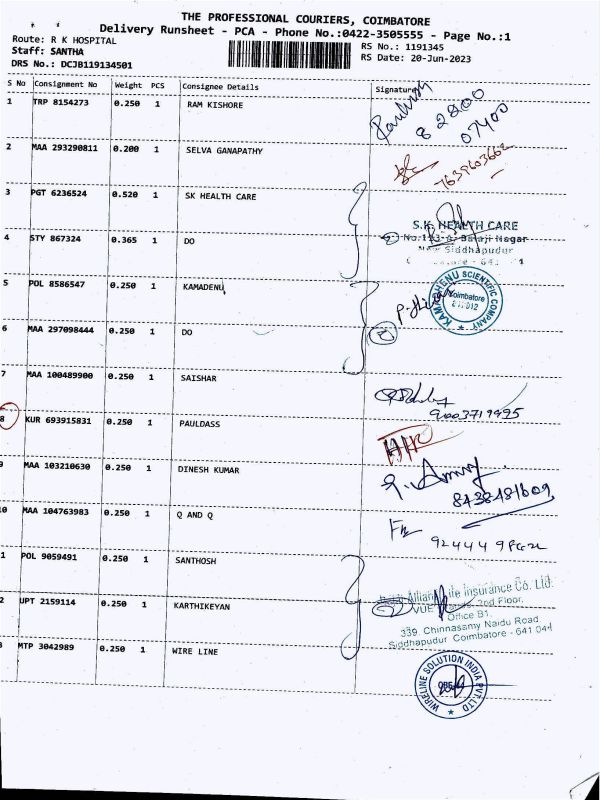 THE PROFESSIONAL COURIERS, COIMBATORE
Delivery Runsheet - PCA - Phone No.:0422-3505555 - Page No.:1
Route: R K HOSPITAL
Staff: SANTHA
DRS No.: DCJB119134501
RS No.: 1191345
RS Date: 20-Jun-2023
S No Consignment No Weight PCS Consignee Details Signature
1 TRP 8154273 0.250 1 RAM KISHORE
82800
07400
2 MAA 293290811 0.200 1 SELVA GANAPATHY
7639603662
3 PGT 6236524 0.520 1 SK HEALTH CARE
S.K. HEALTH CARE
4 STY 867324 0.365 1 DO
Balaji Nagar
Siddhapudur
5 POL 8586547 0.250 1 KAMADENU
KAMADHENU SCIENTIFIC COMPANY
Coimbatore
6 MAA 297098444 0.250 1 DO
2
7 MAA 100489900 0.250 1 SAISHAR
8 KUR 693915831 0.250 1 PAULDASS
9 MAA 103210630 0.250 1 DINESH KUMAR
0 MAA 104763983 0.250 1 Q AND Q
1 POL 9059491 0.250 1 SANTHOSH
Life Insurance Co. Ltd.
2 UPT 2159114 0.250 1 KARTHIKEYAN
2nd Floor,
Office B1,
339, Chinnasamy Naidu Road
Siddhapudur Coimbatore - 641 044
3 MTP 3042989 0.250 1 WIRE LINE
WIRELINE SOLUTION INDIA PVT. LTD